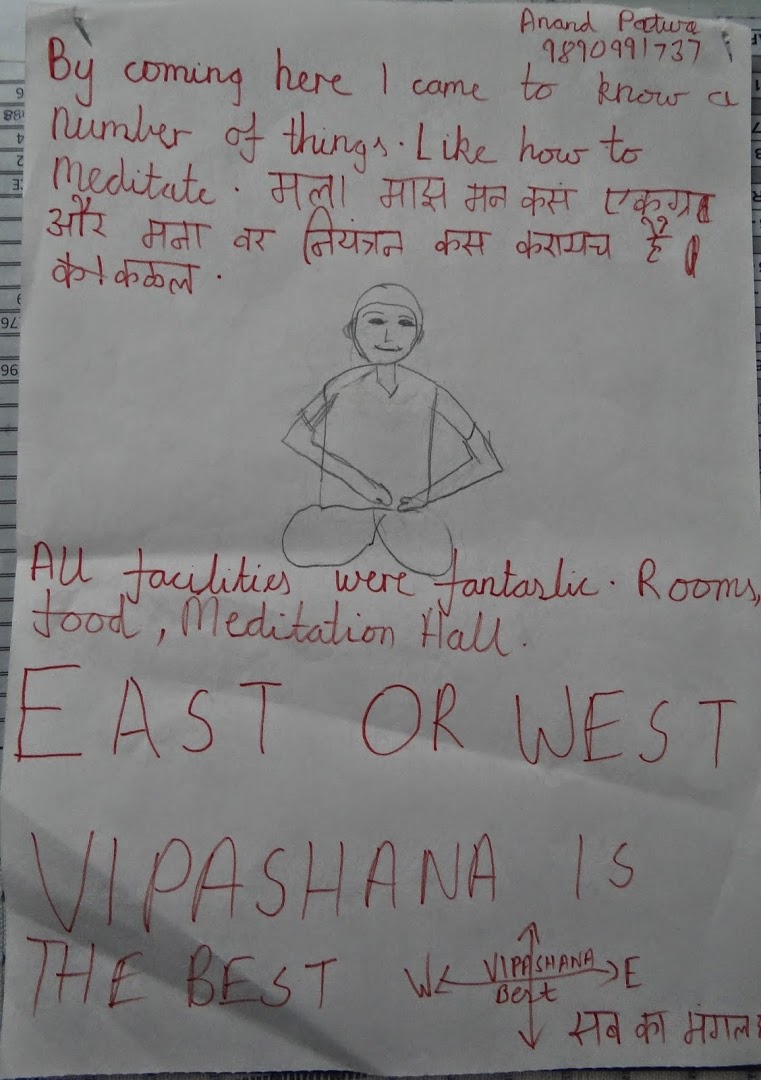 Anand Patwa
9890991737
By coming here I came to know a
number of things. Like how to
Meditate. मला माझ मन कसं एकाग्र
और मना वर नियंत्रन कस करायच है
कळल.
All facilities were fantastic. Rooms,
food, Meditation Hall.
EAST OR WEST
VIPASHANA IS
THE BEST
W VIPASHANA E
Best
सब का मंगल